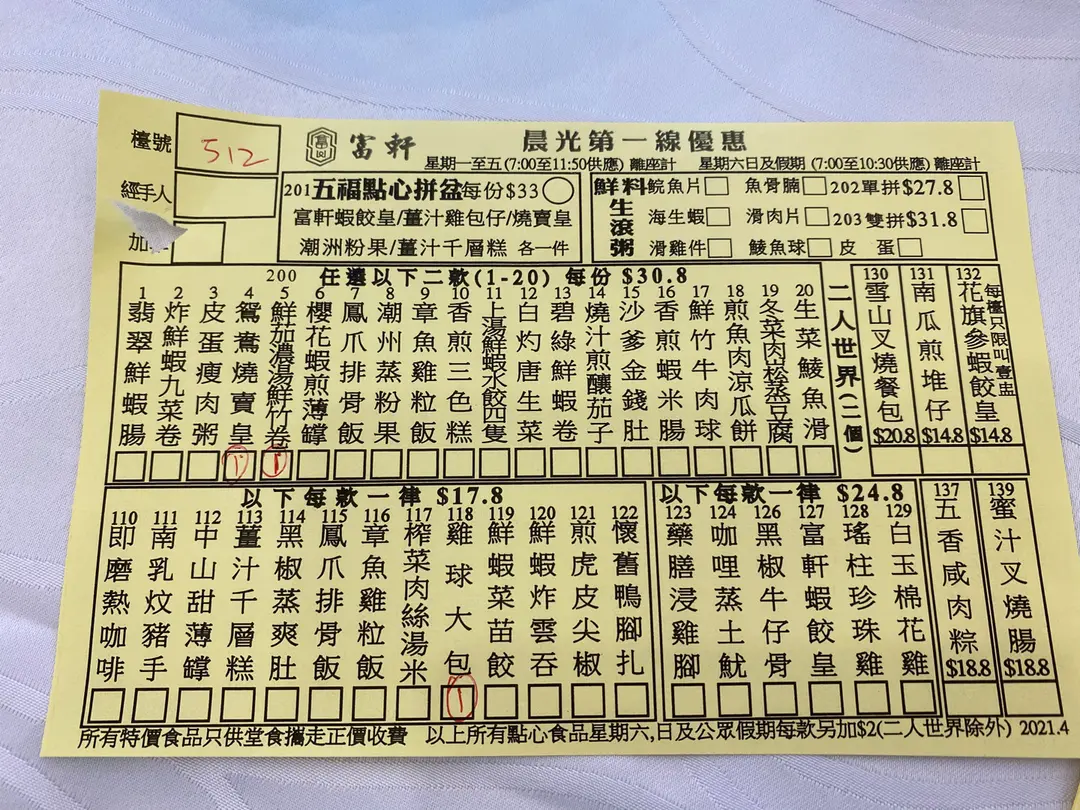 檯號
512
富軒
晨光第一線優惠
星期一至五(7:00至11:50供應) 離座計 星期六日及假期 (7:00至10:30供應) 離座計
經手人
201五福點心拼盆每份$33
富軒蝦餃皇/薑汁雞包仔/燒賣皇
潮洲粉果/薑汁千層糕 各一件
鮮料生滾粥
鯇魚片 魚骨腩 202單拼$27.8
海生蝦 滑肉片 203雙拼$31.8
滑雞件 鯪魚球 皮蛋
加
200 任選以下二款(1-20) 每份 $30.8
1 翡翠鮮蝦腸
2 炸鮮蝦九菜卷
3 皮蛋瘦肉粥
4 鴛鴦燒賣皇 1
5 鮮茄濃湯鮮竹卷 1
6 櫻花蝦煎薄罉
7 鳳爪排骨飯
8 潮州蒸粉果
9 章魚雞粒飯
10 香煎三色糕
11 上湯鮮蝦水餃四隻
12 白灼唐生菜
13 碧綠鮮蝦卷
14 燒汁煎釀茄子
15 沙爹金錢肚
16 香煎蝦米腸
17 鮮竹牛肉球
18 煎魚肉涼瓜餅
19 冬菜肉崧蒸豆腐
20 生菜鯪魚滑
二人世界(二個)
130 雪山叉燒餐包 $20.8
131 南瓜煎堆仔 $14.8
132 花旗參蝦餃皇 $14.8
每檯只限叫壹盅
以下每款一律 $17.8
110 即磨熱咖啡
111 南乳炆豬手
112 中山甜薄罉
113 薑汁千層糕
114 黑椒蒸爽肚
115 鳳爪排骨飯
116 章魚雞粒飯
117 榨菜肉絲湯米
118 雞球大包 1
119 鮮蝦菜苗餃
120 鮮蝦炸雲吞
121 煎虎皮尖椒
122 懷舊鴨腳扎
以下每款一律 $24.8
123 藥膳浸雞腳
124 咖哩蒸土魷
126 黑椒牛仔骨
127 富軒蝦餃皇
128 瑤柱珍珠雞
129 白玉棉花雞
137 五香咸肉粽 $18.8
139 蜜汁叉燒腸 $18.8
所有特價食品只供堂食攜走正價收費 以上所有點心食品星期六,日及公眾假期每款另加$2(二人世界除外) 2021.4